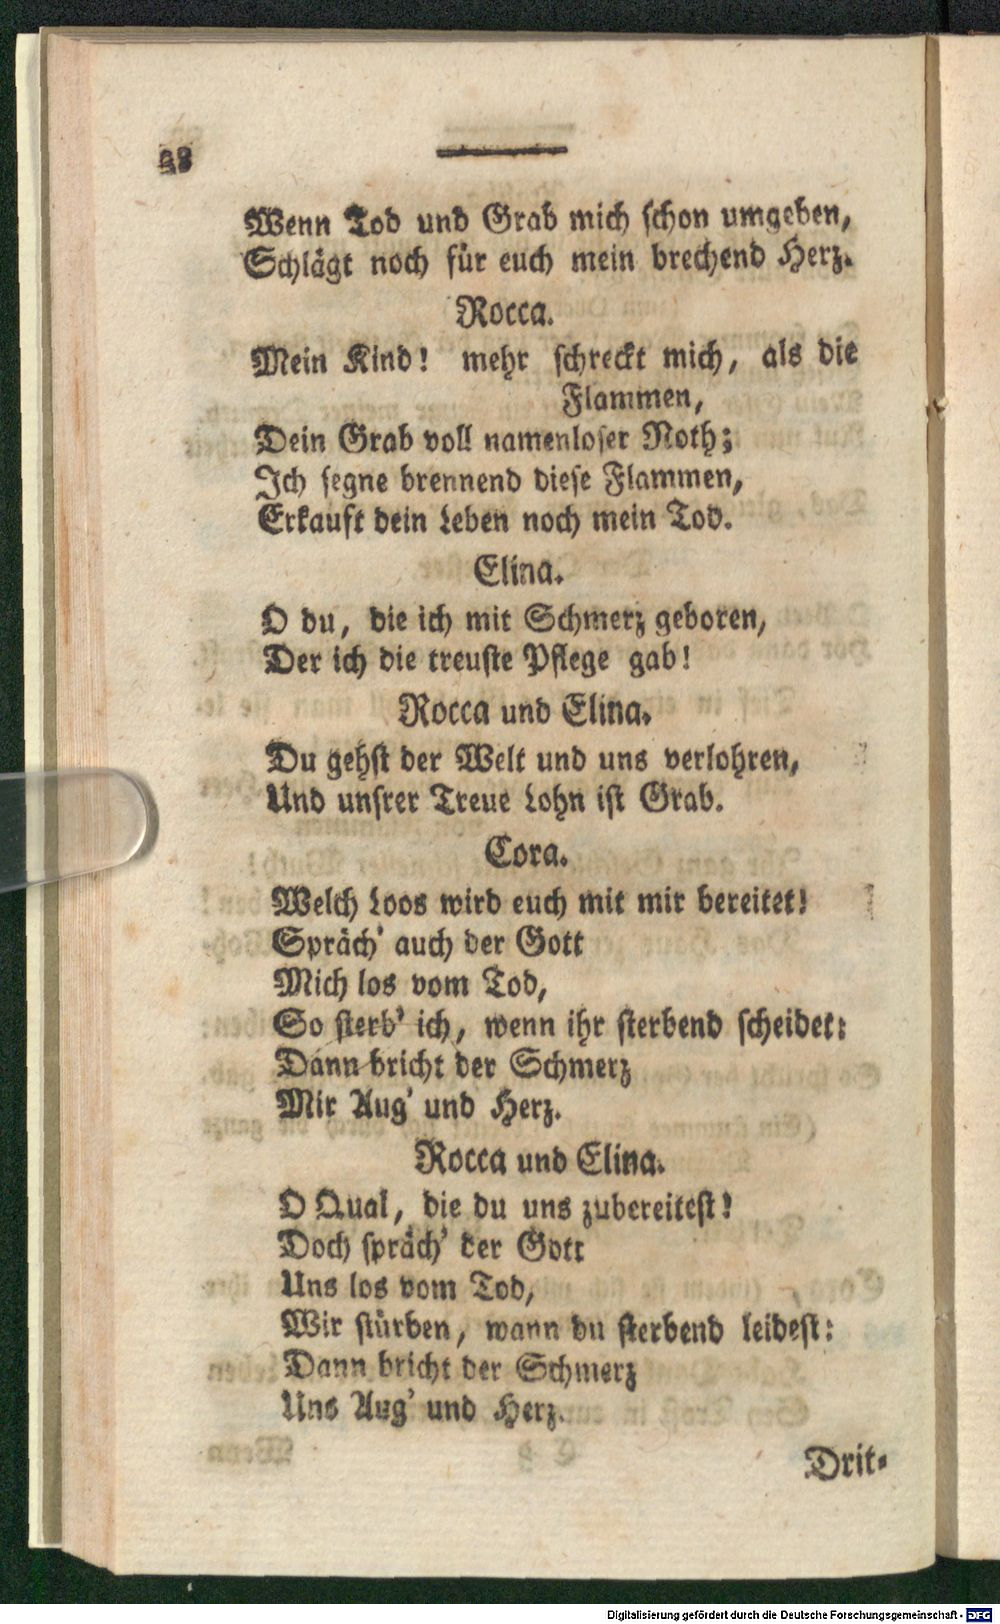 38
Wenn Tod und Grab mich schon umgeben,
Schlägt noch für euch mein brechend Herz.
Rocca.
Mein Kind! mehr schreckt mich, als die
Flammen,
Dein Grab voll namenloser Noth;
Ich segne brennend diese Flammen,
Erkauft dein Leben noch mein Tod.
Elina.
O du, die ich mit Schmerz geboren,
Der ich die treuste Pflege gab!
Rocca und Elina.
Du gehst der Welt und uns verlohren,
Und unsrer Treue Lohn ist Grab.
Cora.
Welch Loos wird euch mit mir bereitet!
Spräch' auch der Gott
Mich los vom Tod,
So sterb' ich, wenn ihr sterbend scheidet:
Dann bricht der Schmerz
Mir Aug' und Herz.
Rocca und Elina.
O Qual, die du uns zubereitest!
Doch spräch' der Gott
Uns los vom Tod,
Wir stürben, wann du sterbend leidest:
Dann bricht der Schmerz
Uns Aug' und Herz.
Drit-
Digitalisierung gefördert durch die Deutsche Forschungsgemeinschaft - DFG